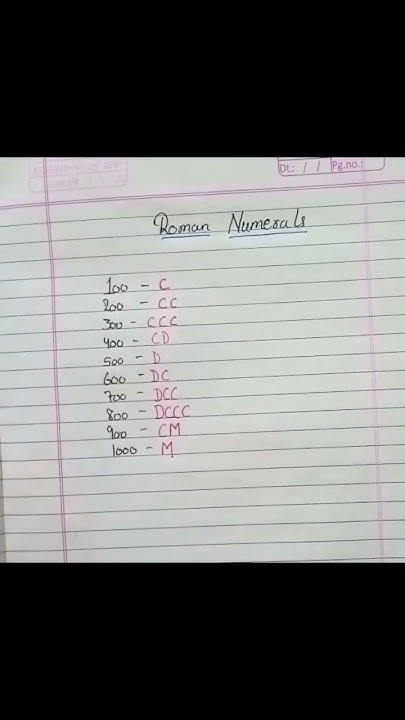 Dt: / / Pg.no.:
Roman Numerals
100 - C
200 - CC
300 - CCC
400 - CD
500 - D
600 - DC
700 - DCC
800 - DCCC
900 - CM
1000 - M